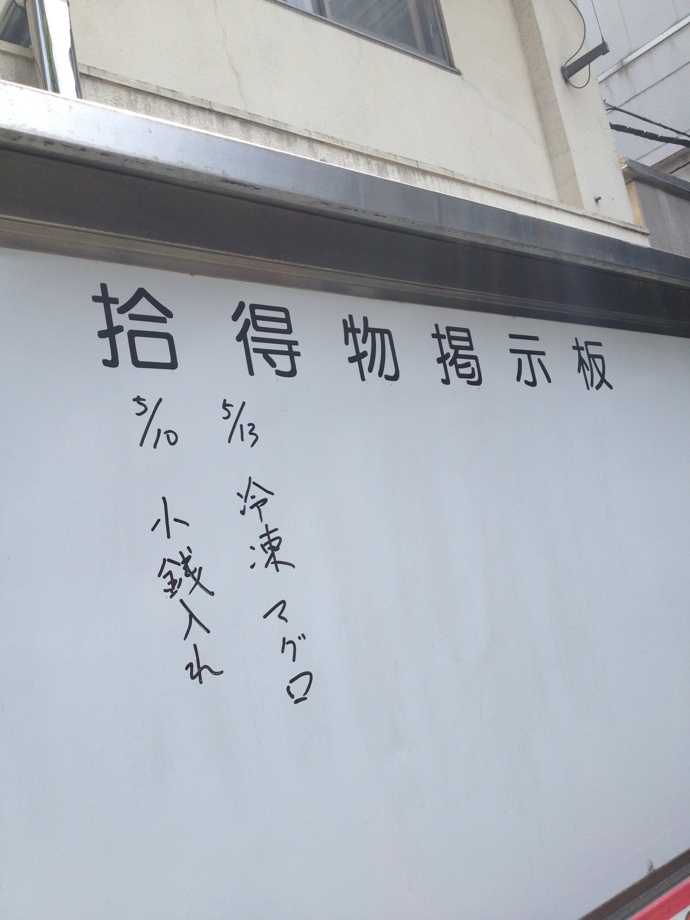 拾得物掲示板
5/10 小銭入れ
5/13 冷凍マグロ